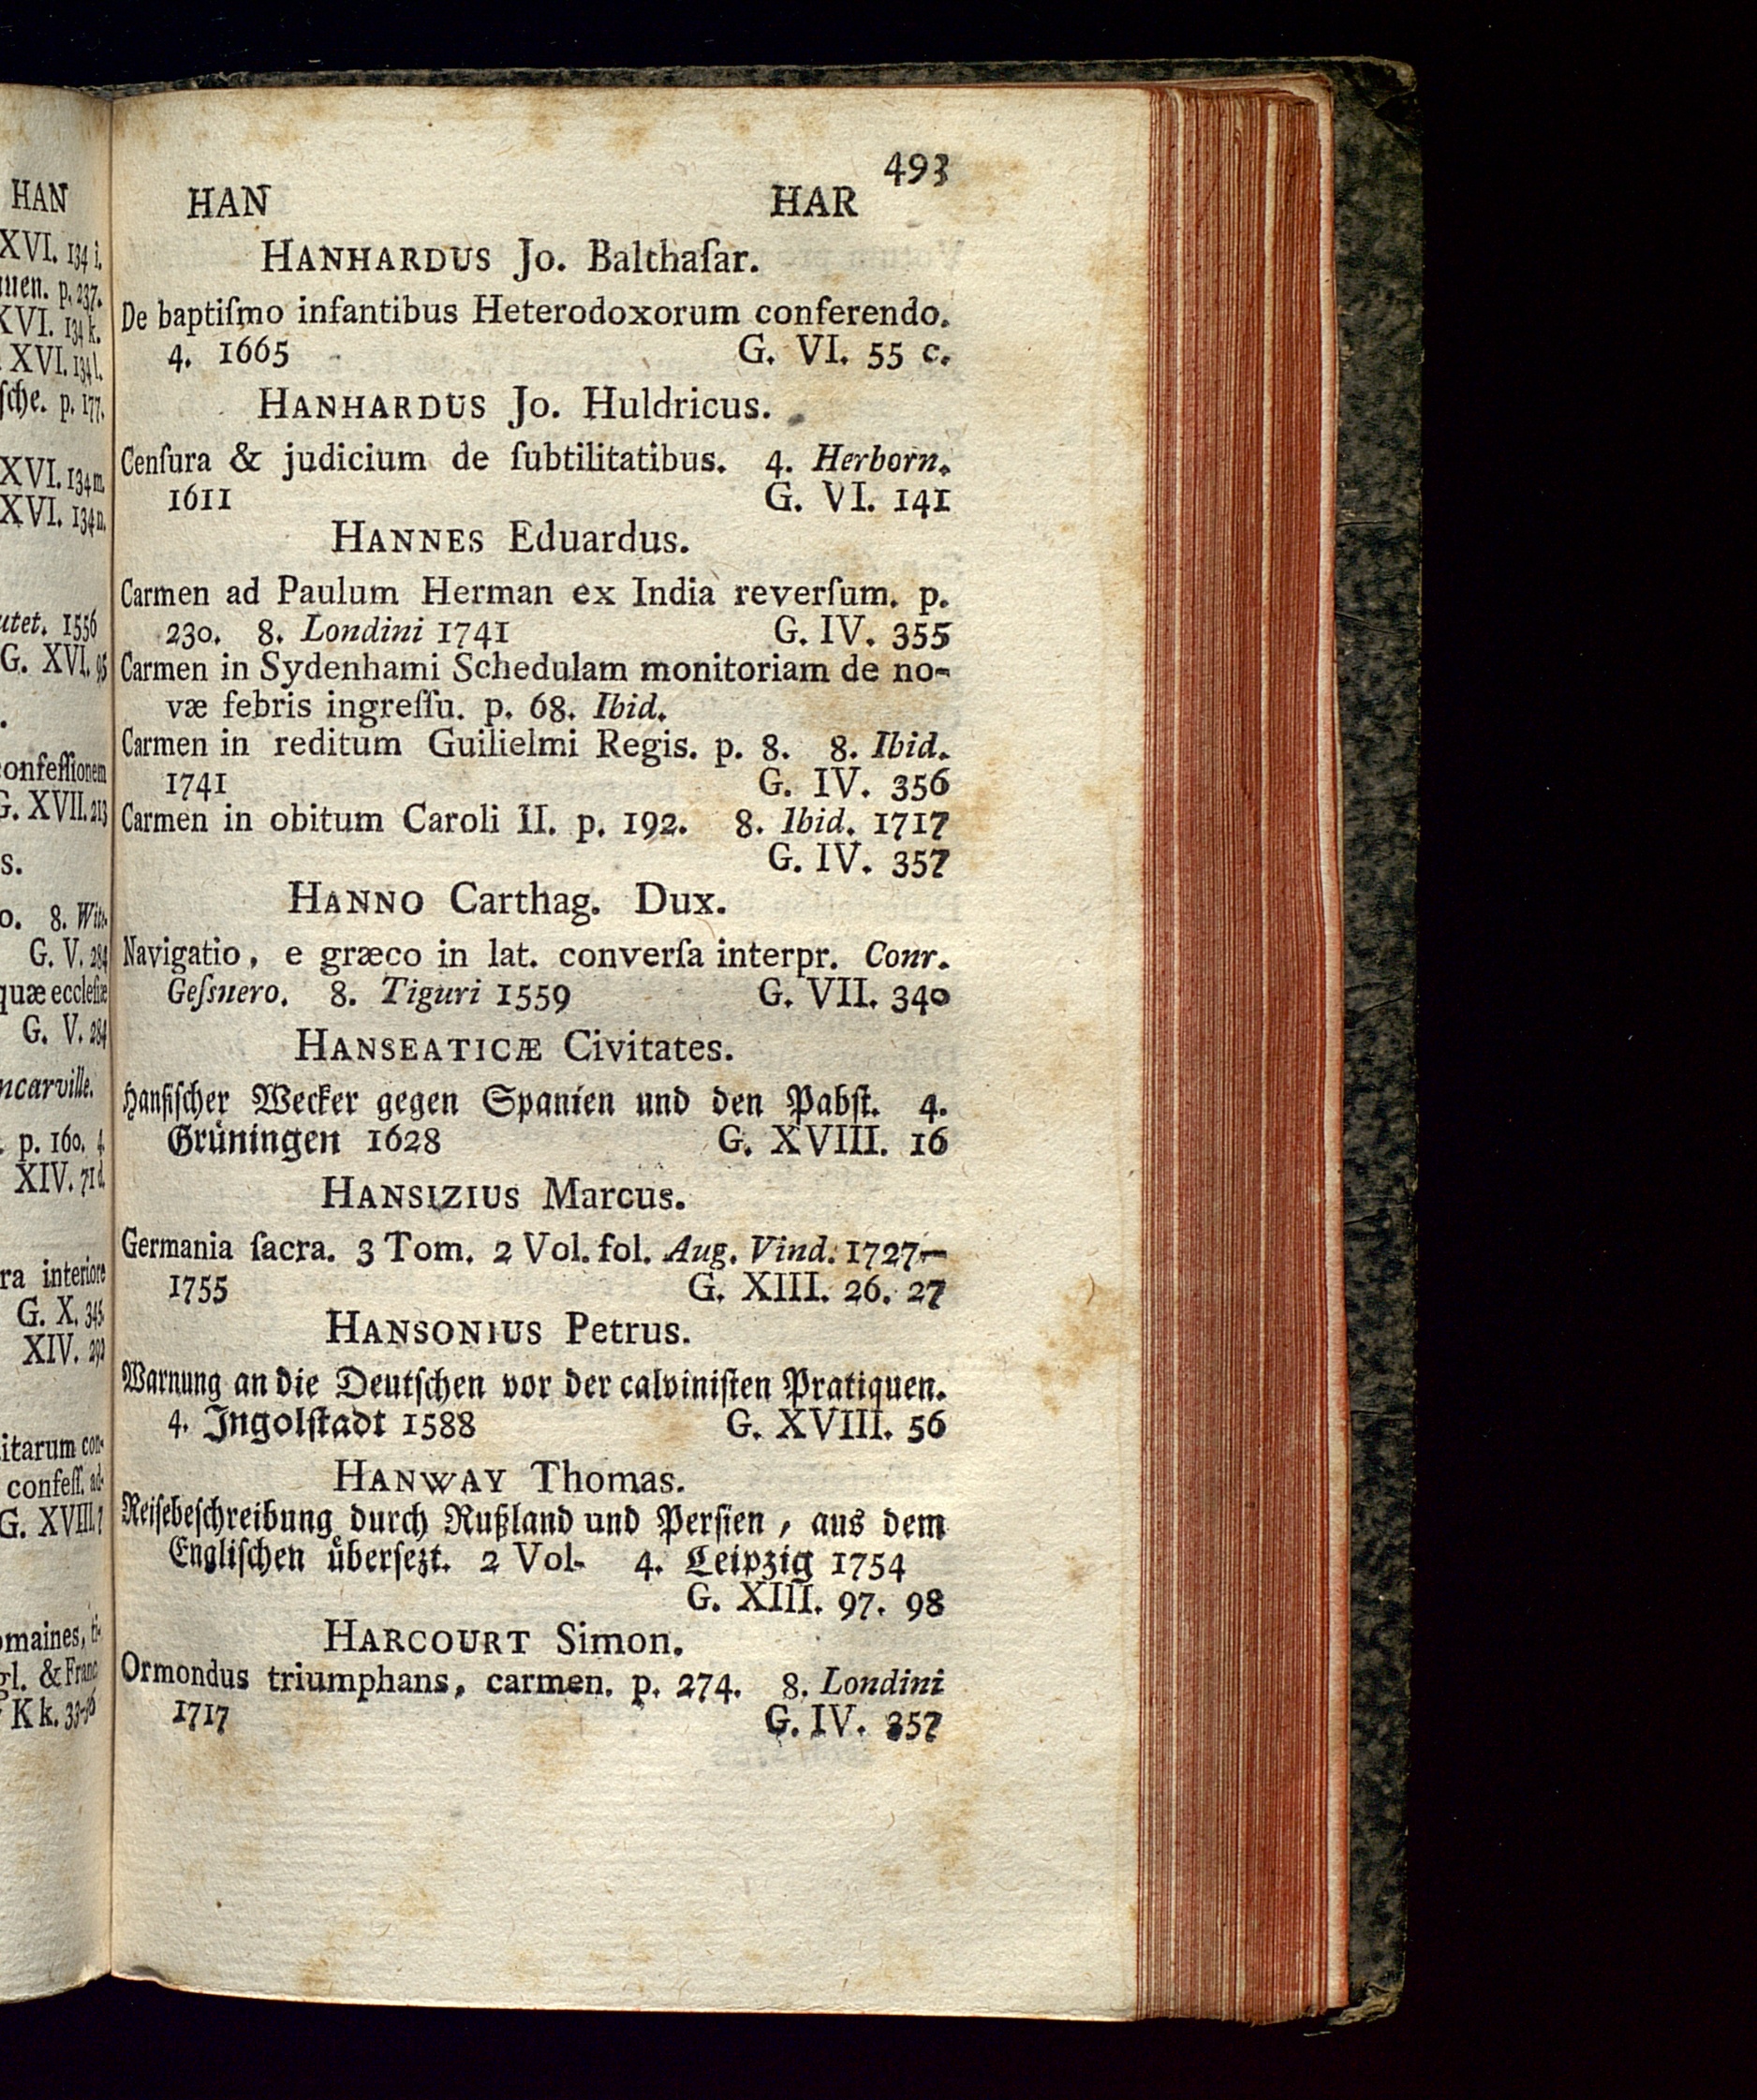 HAN
XVI. 134 i.
nen. p. 237.
XVI. 134 k.
XVI. 134 l.
ſche. p. 177.
XVI. 134 m.
XVI. 134 n.
utet. 1556
G. XVI. 95
confeſſionem
G. XVII. 213
s.
o. 8. Wit-
G. V. 284
quæ eccleſiæ
G. V. 284
ncarville.
p. 160. 4.
XIV. 71 d.
ra interiore
G. X. 345
XIV. 292
itarum con-
confeſſ. ad-
G. XVIII. 7
omaines, ti-
gl. & Franc
K k. 33-36
493
HAN HAR
HANHARDUS Jo. Balthaſar.
De baptiſmo infantibus Heterodoxorum conferendo.
4. 1665 G. VI. 55 c.
HANHARDUS Jo. Huldricus.
Cenſura & judicium de ſubtilitatibus. 4. Herborn.
1611 G. VI. 141
HANNES Eduardus.
Carmen ad Paulum Herman ex India reverſum. p.
230. 8. Londini 1741 G. IV. 355
Carmen in Sydenhami Schedulam monitoriam de no-
væ febris ingreſſu. p. 68. Ibid.
Carmen in reditum Guilielmi Regis. p. 8. 8. Ibid.
1741 G. IV. 356
Carmen in obitum Caroli II. p. 192. 8. Ibid. 1717
G. IV. 357
HANNO Carthag. Dux.
Navigatio, e græco in lat. converſa interpr. Conr.
Geſsnero. 8. Tiguri 1559 G. VII. 340
HANSEATICÆ Civitates.
Hanſiſcher Wecker gegen Spanien und den Pabſt. 4.
Grüningen 1628 G. XVIII. 16
HANSIZIUS Marcus.
Germania ſacra. 3 Tom. 2 Vol. fol. Aug. Vind. 1727-
1755 G. XIII. 26. 27
HANSONIUS Petrus.
Warnung an die Deutſchen vor der calviniſten Pratiquen.
4. Ingolſtadt 1588 G. XVIII. 56
HANWAY Thomas.
Reiſebeſchreibung durch Rußland und Perſien, aus dem
Engliſchen überſezt. 2 Vol. 4. Leipzig 1754
G. XIII. 97. 98
HARCOURT Simon.
Ormondus triumphans, carmen. p. 274. 8. Londini
1717 G. IV. 357